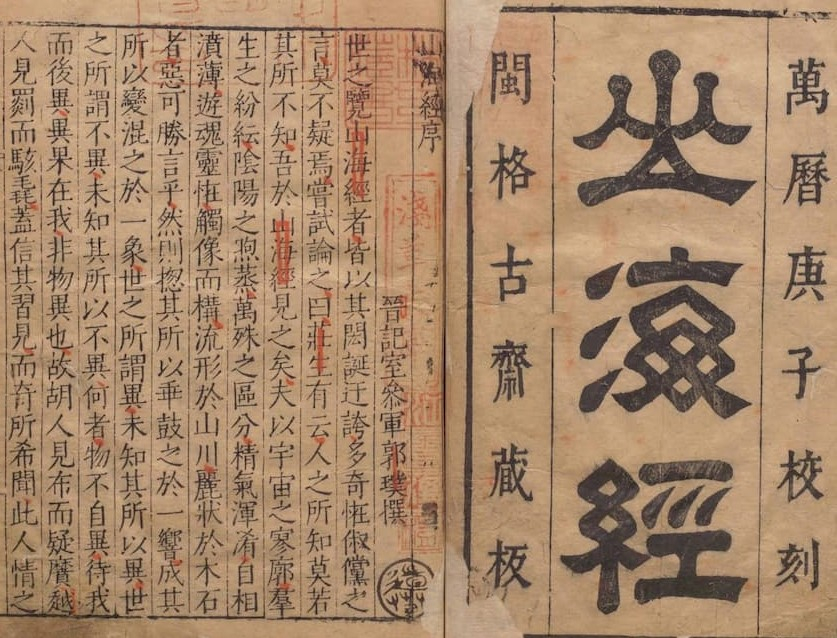 萬曆庚子校刻
山海經
閩格古齋蔵板
山海經序
晉記室參軍郭璞撰
世之覽山海經者皆以其閎誕迂誇多奇恠俶儻之
言莫不疑焉嘗試論之曰莊生有云人之所知莫若
其所不知吾於山海經見之矣夫以宇宙之寥廓羣
生之紛紜陰陽之煦蒸萬殊之區分精氣渾淆自相
濆薄遊魂靈恠觸像而構流形於山川麗狀於木石
者惡可勝言乎然則揔其所以垂鼓之於一響成其
所以變混之於一象世之所謂異未知其所以異世
之所謂不異未知其所以不異何者物不自異待我
而後異異果在我非物異也故胡人見布而疑黂越
人見罽而駭毳蓋信其習見而奇所希聞此人情之